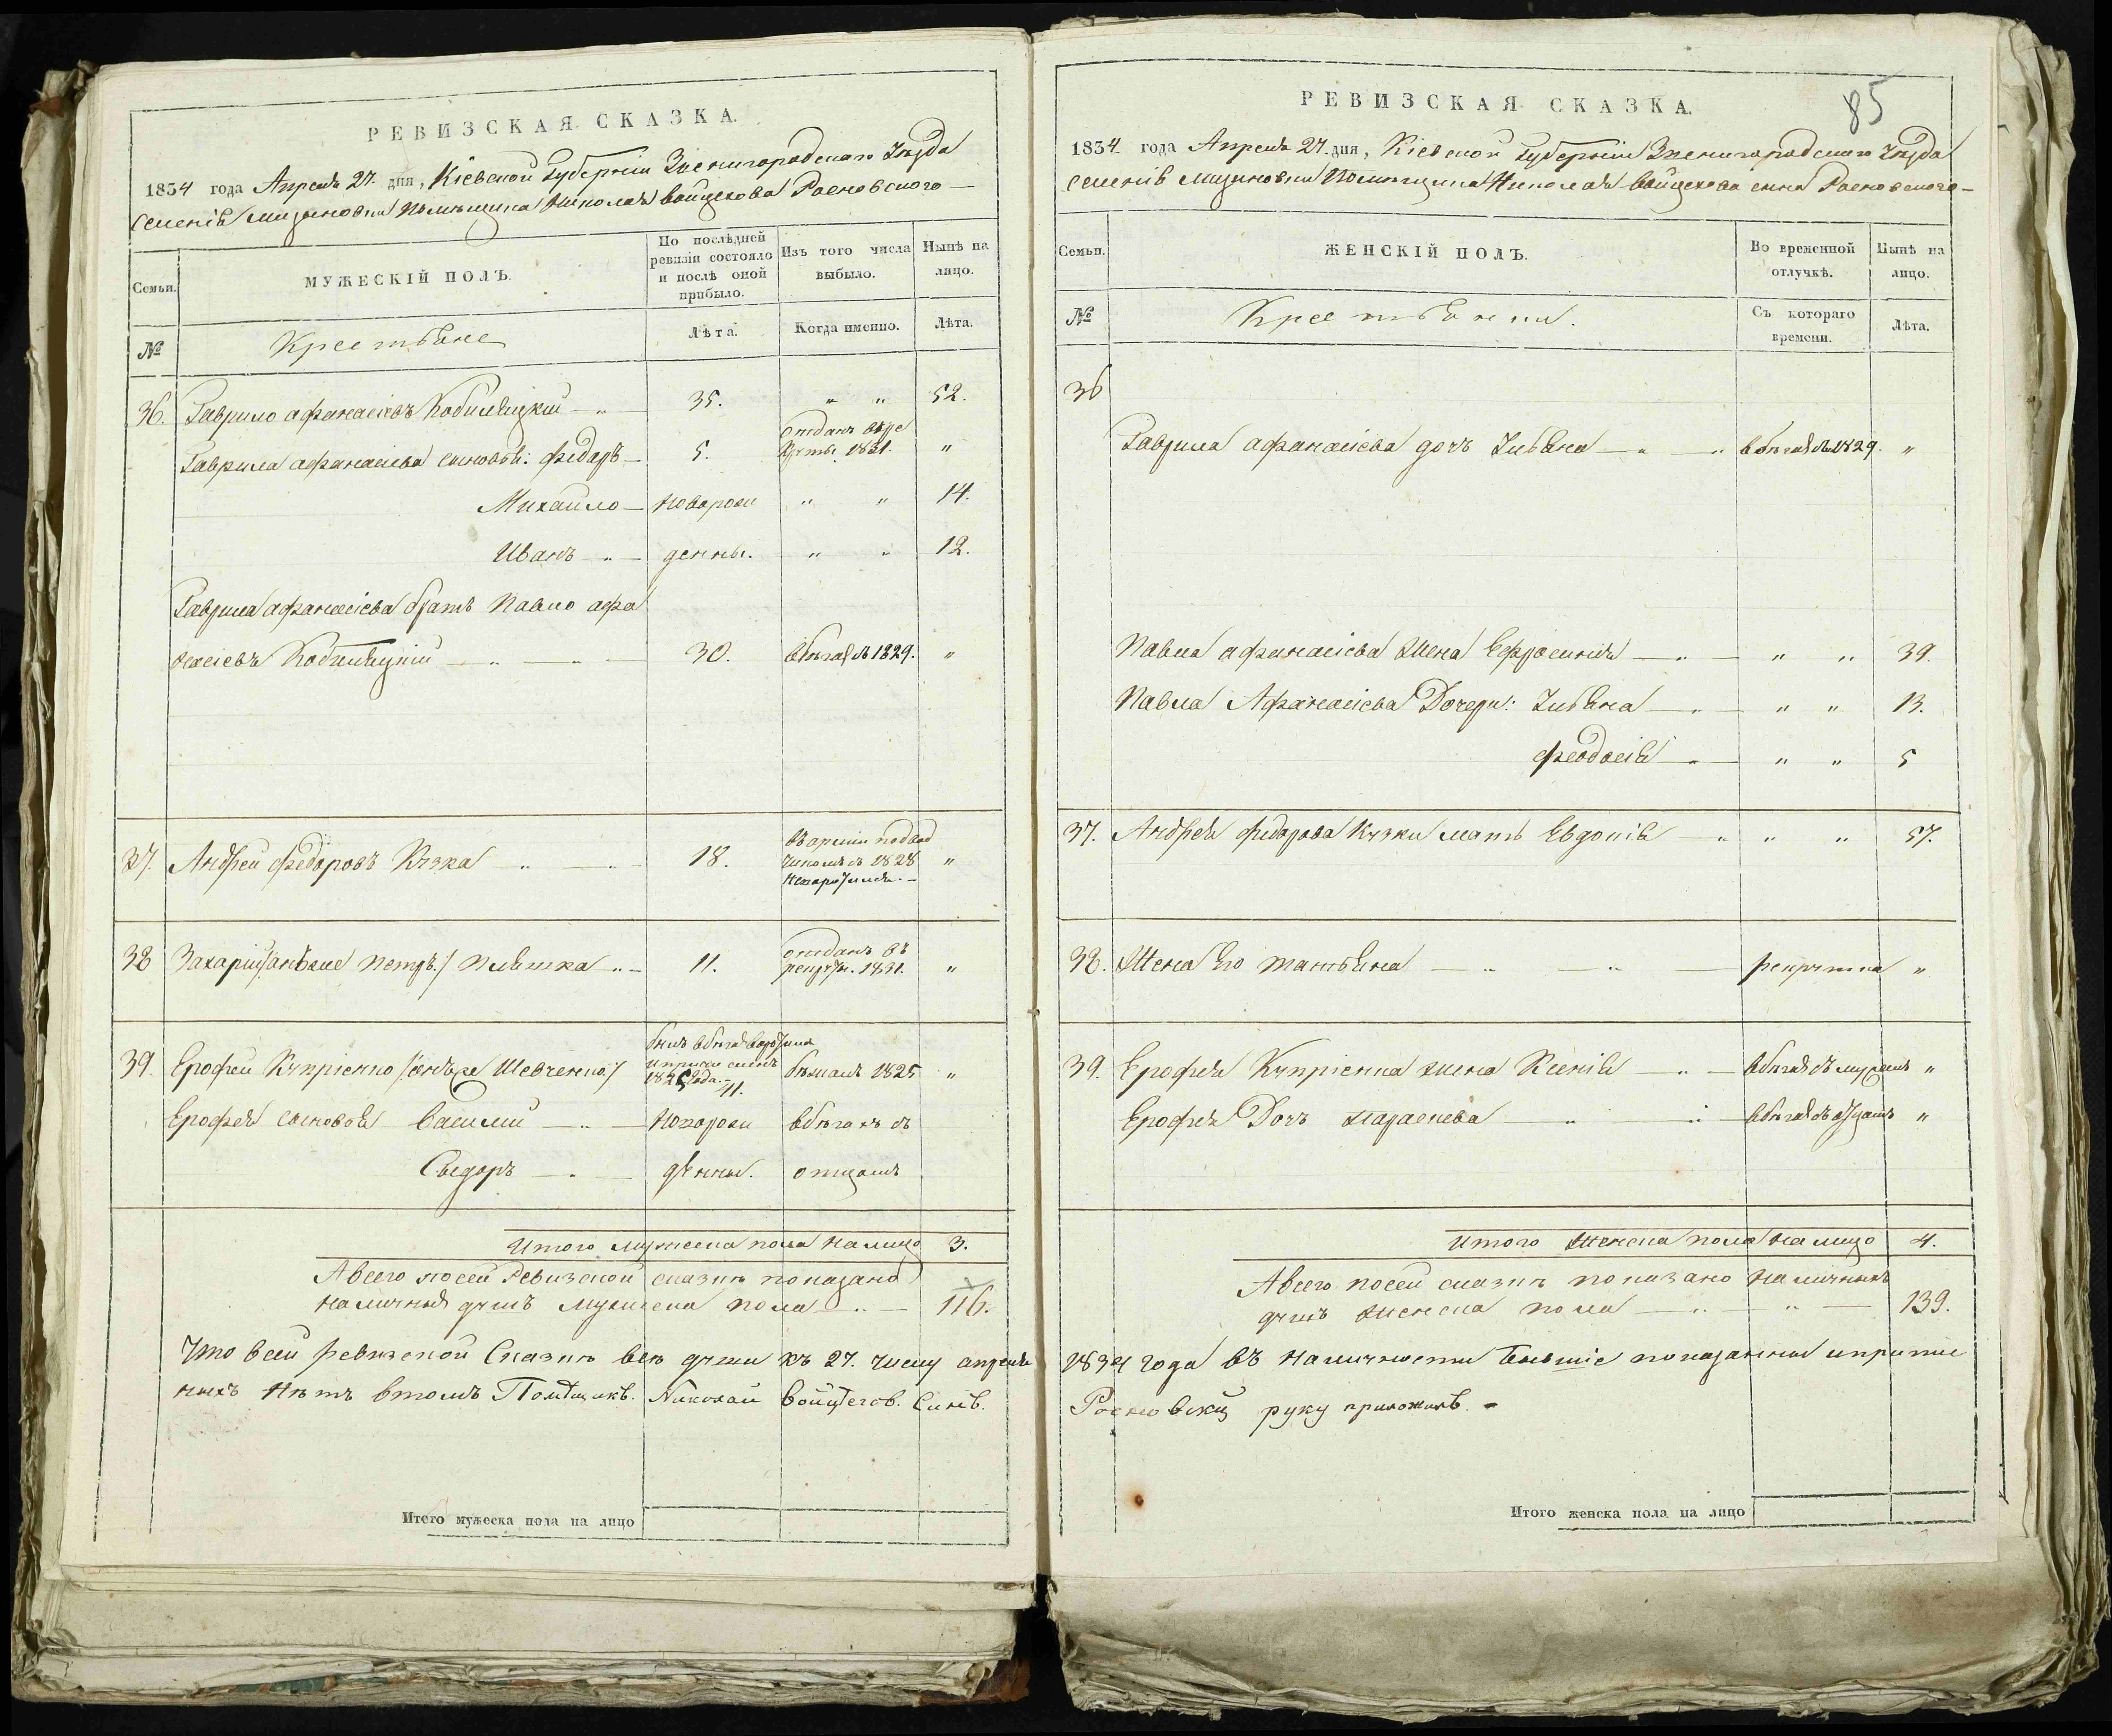 РЕВИЗСКАЯ СКАЗКА.
1834 года Апреля 27. дня, Кіевской Губерніи Звенигородскаго Уезда
Селенія Мизиновки Помещика Николая Войцехова Росновского —
Семьи.
МУЖЕСКІЙ ПОЛЪ.
По послѣдней ревизіи состояло и послѣ оной прибыло.
Изъ того числа выбыло.
Нынѣ на лицо.
№
Крестьяне
Лѣта.
Когда именно.
Лѣта.
36. Гаврило афанасіевъ 35. " " 52.
Гаврила афанасіева сыновья: Федоръ — 5. отданъ в 1831. "
Михайло — новорож " " 14.
Иванъ — " — денны. " " 12.
Гаврила афанасіева братъ Павло афа
насіевъ — " — " — 30. в бѣгах съ 1829. "
37. Андрей Федоровъ — " — 18. 1828 "
38 Захарий Петръ./ — " — 11. отданъ въ рекруты. 1831. "
39. Ерофей Купріенко Шевченко/ 11. бѣжалъ 1825 "
Ерофея сыновья Василий — " — Новорож в бѣгахъ съ
Сыдоръ — " — денны. отцомъ
Итого мужеска пола на лицо 3.
А всего по сей Ревизской сказки показано
наличныхъ душъ мужеска пола — " — 116.
Что в сей ревизской Сказкѣ все души къ 27. числу апреля
ныхъ нѣтъ в томъ Помѣщикъ. Николай Войцехов. Синъ.
Итого мужеска пола на лицо
РЕВИЗСКАЯ СКАЗКА.
85
1834. года Апреля 27. дня, Кіевской Губерніи Звенигородскаго Уезда
Селенія Мизиновки Помещика Николая Войцехова сына Росновского —
Семьи.
ЖЕНСКІЙ ПОЛЪ.
Во временной отлучкѣ.
Нынѣ на лицо.
№
Крестьянки.
Съ котораго времени.
Лѣта.
36
Гаврила афанасіева дочъ Ульяна — " — " в бѣгах съ 1829. "
Павла афанасіева жена Ефросинія — " — " " 39.
Павла Афанасіева Дочери: Ульяна — " — " " 13.
Феодосія — " — " " 5
37. Андрея Федорова мать Евдокія " " " 57.
38. Жена его татьяна — " — " — рекрутка "
39. Ерофея Купріенка жена Ксенія — " — в бѣгах съ мужемъ "
Ерофея Дочъ Параскева — " — " — в бѣгах съ отцомъ "
Итого Женска пола на лицо 4.
А всего по сей сказки показано наличныхъ
душъ женска пола — " — " — 139.
1834 года въ наличности бывшіе показанны и
Росновский руку приложилъ. —
Итого женска пола на лицо